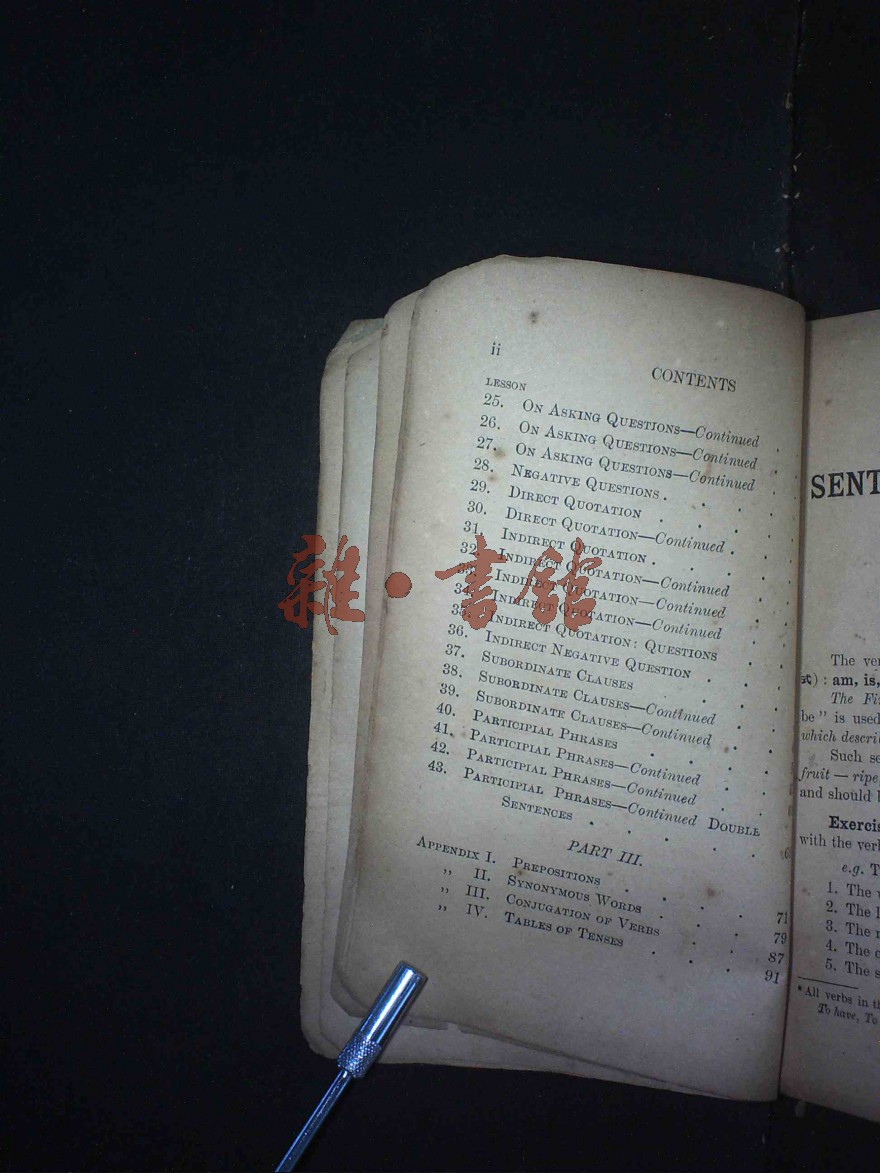 ii
CONTENTS
LESSON
25. ON ASKING QUESTIONS—Continued .
26. ON ASKING QUESTIONS—Continued .
27. ON ASKING QUESTIONS—Continued .
28. NEGATIVE QUESTIONS . . . .
29. DIRECT QUOTATION . . . .
30. DIRECT QUOTATION—Continued . .
31. INDIRECT QUOTATION . . . .
32. INDIRECT QUOTATION—Continued .
33. INDIRECT QUOTATION—Continued .
34. INDIRECT QUOTATION—Continued .
35. INDIRECT QUOTATION: QUESTIONS .
36. INDIRECT NEGATIVE QUESTION . .
37. SUBORDINATE CLAUSES . . .
38. SUBORDINATE CLAUSES—Continued .
39. SUBORDINATE CLAUSES—Continued .
40. PARTICIPIAL PHRASES . . .
41. PARTICIPIAL PHRASES—Continued .
42. PARTICIPIAL PHRASES—Continued .
43. PARTICIPIAL PHRASES—Continued DOUBLE
SENTENCES . . . . .
PART III.
APPENDIX I. PREPOSITIONS . . . . 71
„ II. SYNONYMOUS WORDS . . . 79
„ III. CONJUGATION OF VERBS . . 87
„ IV. TABLES OF TENSES . . . 91
SENT
The ver
式) : am, is,
The Fir
be" is used
which descri
Such se
fruit — ripe
and should b
Exercis
with the verb
e.g. T
1. The
2. The
3. The
4. The
5. The
*All verbs in th
To have, To
雜·書館